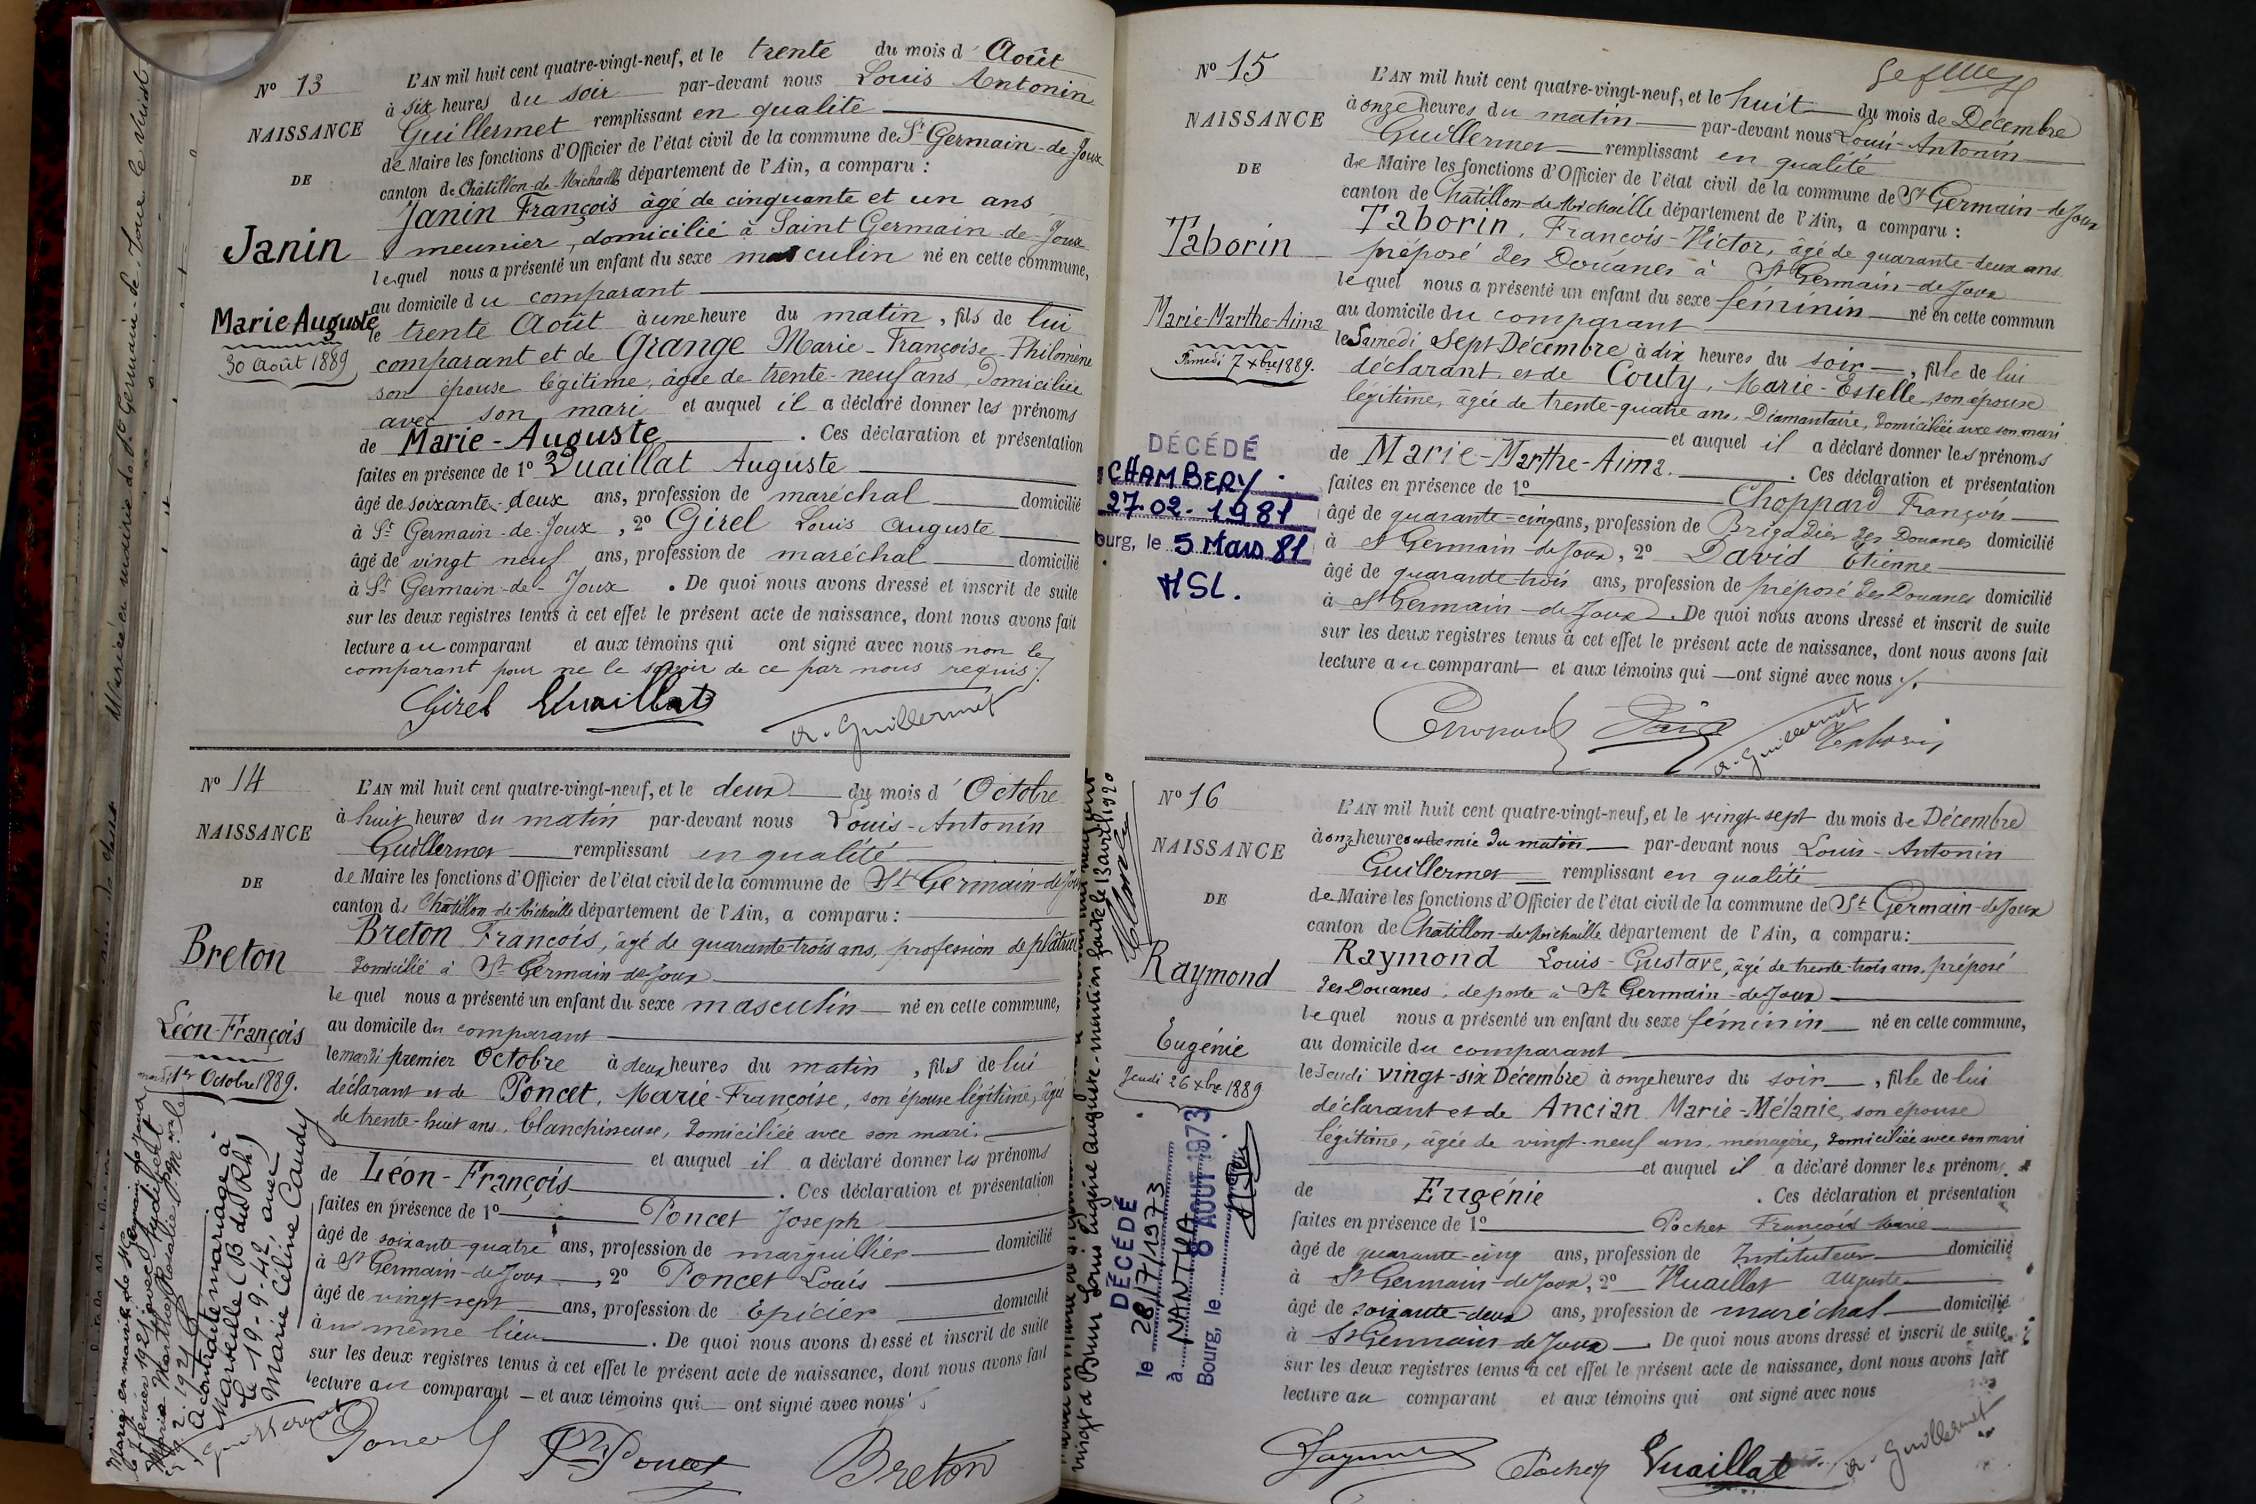 N° 13
NAISSANCE
DE
Janin
Marie Auguste
30 Août 1889
L'AN mil huit cent quatre-vingt-neuf, et le trente du mois d' Août
à six heures du soir par-devant nous Louis Antonin
Guillermet remplissant en qualité
de Maire les fonctions d'Officier de l'état civil de la commune de St Germain-de-Joux
canton de Châtillon-de-Michaille département de l'Ain, a comparu :
Janin François âgé de cinquante et un ans
meunier, domicilié à Saint Germain-de-Joux
lequel nous a présenté un enfant du sexe masculin né en cette commune,
au domicile du comparant
le trente Août à une heure du matin, fils de lui
comparant et de Grange Marie-Françoise-Philomène
son épouse légitime, âgée de trente-neuf ans, domiciliée
avec son mari et auquel il a déclaré donner les prénoms
de Marie-Auguste. Ces déclaration et présentation
faites en présence de 1° Vuaillat Auguste
âgé de soixante-deux ans, profession de maréchal domicilié
à St Germain-de-Joux, 2° Girel Louis Auguste
âgé de vingt neuf ans, profession de maréchal domicilié
à St Germain-de-Joux. De quoi nous avons dressé et inscrit de suite
sur les deux registres tenus à cet effet le présent acte de naissance, dont nous avons fait
lecture au comparant et aux témoins qui ont signé avec nous non le
comparant pour ne le savoir de ce par nous requis./.
Girel Vuaillat
A. Guillermet
N° 14
NAISSANCE
DE
Breton
Léon-François
mardi 1er Octobre 1889.
L'AN mil huit cent quatre-vingt-neuf, et le deux du mois d' Octobre
à huit heures du matin par-devant nous Louis-Antonin
Guillermet remplissant en qualité
de Maire les fonctions d'Officier de l'état civil de la commune de St Germain-de-Joux
canton de Châtillon-de-Michaille département de l'Ain, a comparu :
Breton François, âgé de quarante-trois ans, profession de plâtrier
domicilié à St Germain-de-Joux
lequel nous a présenté un enfant du sexe masculin né en cette commune,
au domicile du comparant
le mardi premier Octobre à deux heures du matin, fils de lui
déclarant et de Poncet, Marie-Françoise, son épouse légitime, âgée
de trente-huit ans, blanchisseuse, domiciliée avec son mari.
et auquel il a déclaré donner les prénoms
de Léon-François. Ces déclaration et présentation
faites en présence de 1° Poncet Joseph
âgé de soixante-quatre ans, profession de marguillier domicilié
à St Germain-de-Joux, 2° Poncet Louis
âgé de vingt-sept ans, profession de Epicier domicilié
au même lieu. De quoi nous avons dressé et inscrit de suite
sur les deux registres tenus à cet effet le présent acte de naissance, dont nous avons fait
lecture au comparant et aux témoins qui ont signé avec nous
Poncet Breton
A contracté mariage à
Marseille (B du Rh)
le 19-9-42, avec
Marie Céline Caudy
N° 15
NAISSANCE
DE
Taborin
Marie-Marthe-Aima
Samedi 7 xbre 1889.
DÉCÉDÉ
CHAMBERY
27.02.1981
Bourg, le 5 Mars 81
L'AN mil huit cent quatre-vingt-neuf, et le huit du mois de Décembre
à onze heures du matin par-devant nous Louis-Antonin
Guillermet remplissant en qualité
de Maire les fonctions d'Officier de l'état civil de la commune de St Germain-de-Joux
canton de Châtillon-de-Michaille département de l'Ain, a comparu :
Taborin, François-Victor, âgé de quarante-deux ans
préposé des Douanes à St Germain-de-Joux
lequel nous a présenté un enfant du sexe féminin né en cette commun
au domicile du comparant
le Samedi Sept Décembre à dix heures du soir, fille de lui
déclarant et de Couty, Marie-Estelle, son épouse
légitime, âgée de trente-quatre ans, Diamantaire, domiciliée avec son mari
et auquel il a déclaré donner les prénoms
de Marie-Marthe-Aima. Ces déclaration et présentation
faites en présence de 1° Choppard François
âgé de quarante-cinq ans, profession de Brigadier des Douanes domicilié
à St Germain-de-Joux, 2° David Etienne
âgé de quarante-trois ans, profession de préposé des Douanes domicilié
à St Germain-de-Joux. De quoi nous avons dressé et inscrit de suite
sur les deux registres tenus à cet effet le présent acte de naissance, dont nous avons fait
lecture au comparant et aux témoins qui ont signé avec nous ./.
A. Guillermet
N° 16
NAISSANCE
DE
Raymond
Eugénie
Jeudi 26 xbre 1889
DÉCÉDÉ
le 28/7/1973
à NANTUA
Bourg, le 8 AOUT 1973
L'AN mil huit cent quatre-vingt-neuf, et le vingt-sept du mois de Décembre
à onze heures et demie du matin par-devant nous Louis-Antonin
Guillermet remplissant en qualité
de Maire les fonctions d'Officier de l'état civil de la commune de St Germain-de-Joux
canton de Châtillon-de-Michaille département de l'Ain, a comparu :
Raymond Louis-Gustave, âgé de trente-trois ans, préposé
des Douanes, de poste à St Germain-de-Joux
lequel nous a présenté un enfant du sexe féminin né en cette commune,
au domicile du comparant
le Jeudi vingt-six Décembre à onze heures du soir, fille de lui
déclarant et de Ancian Marie-Mélanie, son épouse
légitime, âgée de vingt-neuf ans, ménagère, domiciliée avec son mari
et auquel il a déclaré donner les prénom
de Eugénie. Ces déclaration et présentation
faites en présence de 1° Pochet François Marie
âgé de quarante-cinq ans, profession de Instituteur domicilié
à St Germain-de-Joux, 2° Vuaillat Auguste
âgé de soixante-deux ans, profession de maréchal domicilié
à St Germain-de-Joux. De quoi nous avons dressé et inscrit de suite
sur les deux registres tenus à cet effet le présent acte de naissance, dont nous avons fait
lecture au comparant et aux témoins qui ont signé avec nous
Pochet Vuaillat A. Guillermet